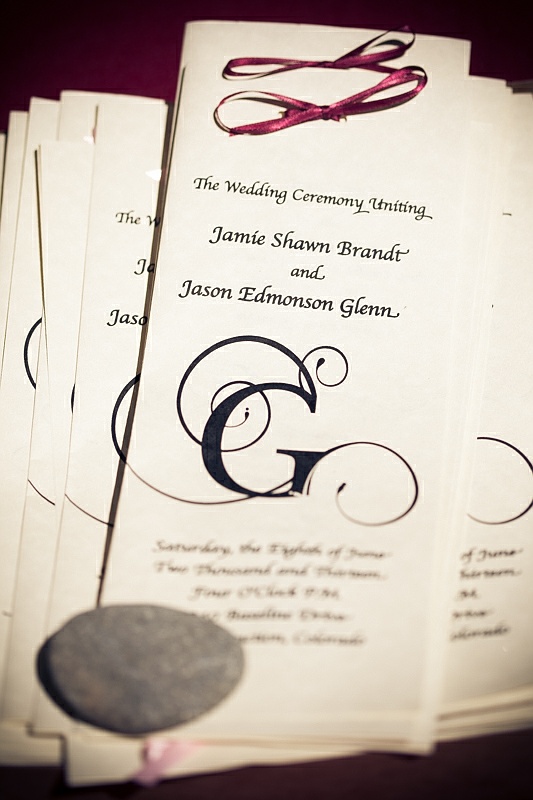 The Wedding Ceremony Uniting
Jamie Shawn Brandt
and
Jason Edmonson Glenn
G
Saturday, the Eighth of June
Two Thousand and Thirteen
Four O'Clock P.M.
Baseline Drive
Colorado
The W
Ja
Jaso
of June